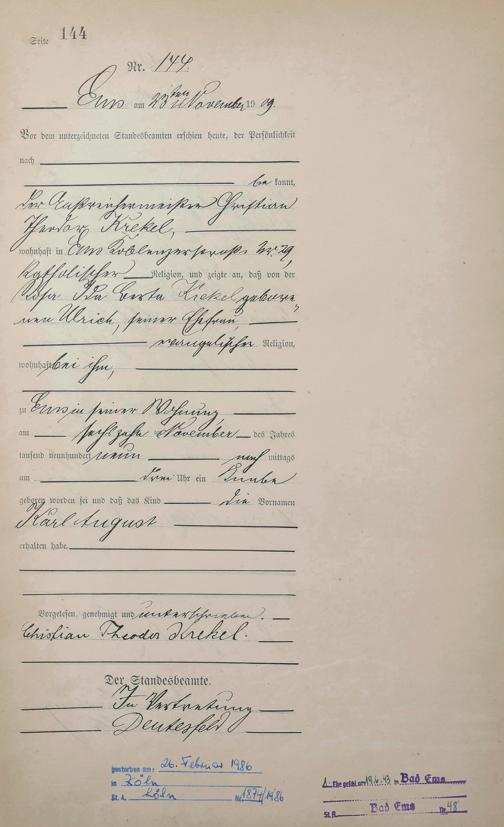 Seite 144
Nr. 144.
Ems am 23ten November 1909.
Vor dem unterzeichneten Standesbeamten erschien heute, der Persönlichkeit
nach
bekannt,
der Anstreichermeister Christian
Theodor Krekel,
wohnhaft in Ems Koblenzerstraße Nr. 29,
katholischer Religion, und zeigte an, daß von der
Rosa Ida Berta Krekel gebore-
nen Ulrich, seiner Ehefrau,
evangelischer Religion,
wohnhaft bei ihm,
zu Ems in seiner Wohnung
am sechszehn November des Jahres
tausend neunhundert neun nachmittags
um drei Uhr ein Knabe
geboren worden sei und daß das Kind die Vornamen
Karl August
erhalten habe.
Vorgelesen, genehmigt und unterschrieben.
Christian Theodor Krekel.
Der Standesbeamte.
In Vertretung
gestorben am: 26. Februar 1986
in Köln
St. A. Köln Nr. 1874/1986
1. Ehe geschl. am 19.4.43 in Bad Ems
St. A. Bad Ems Nr. 48